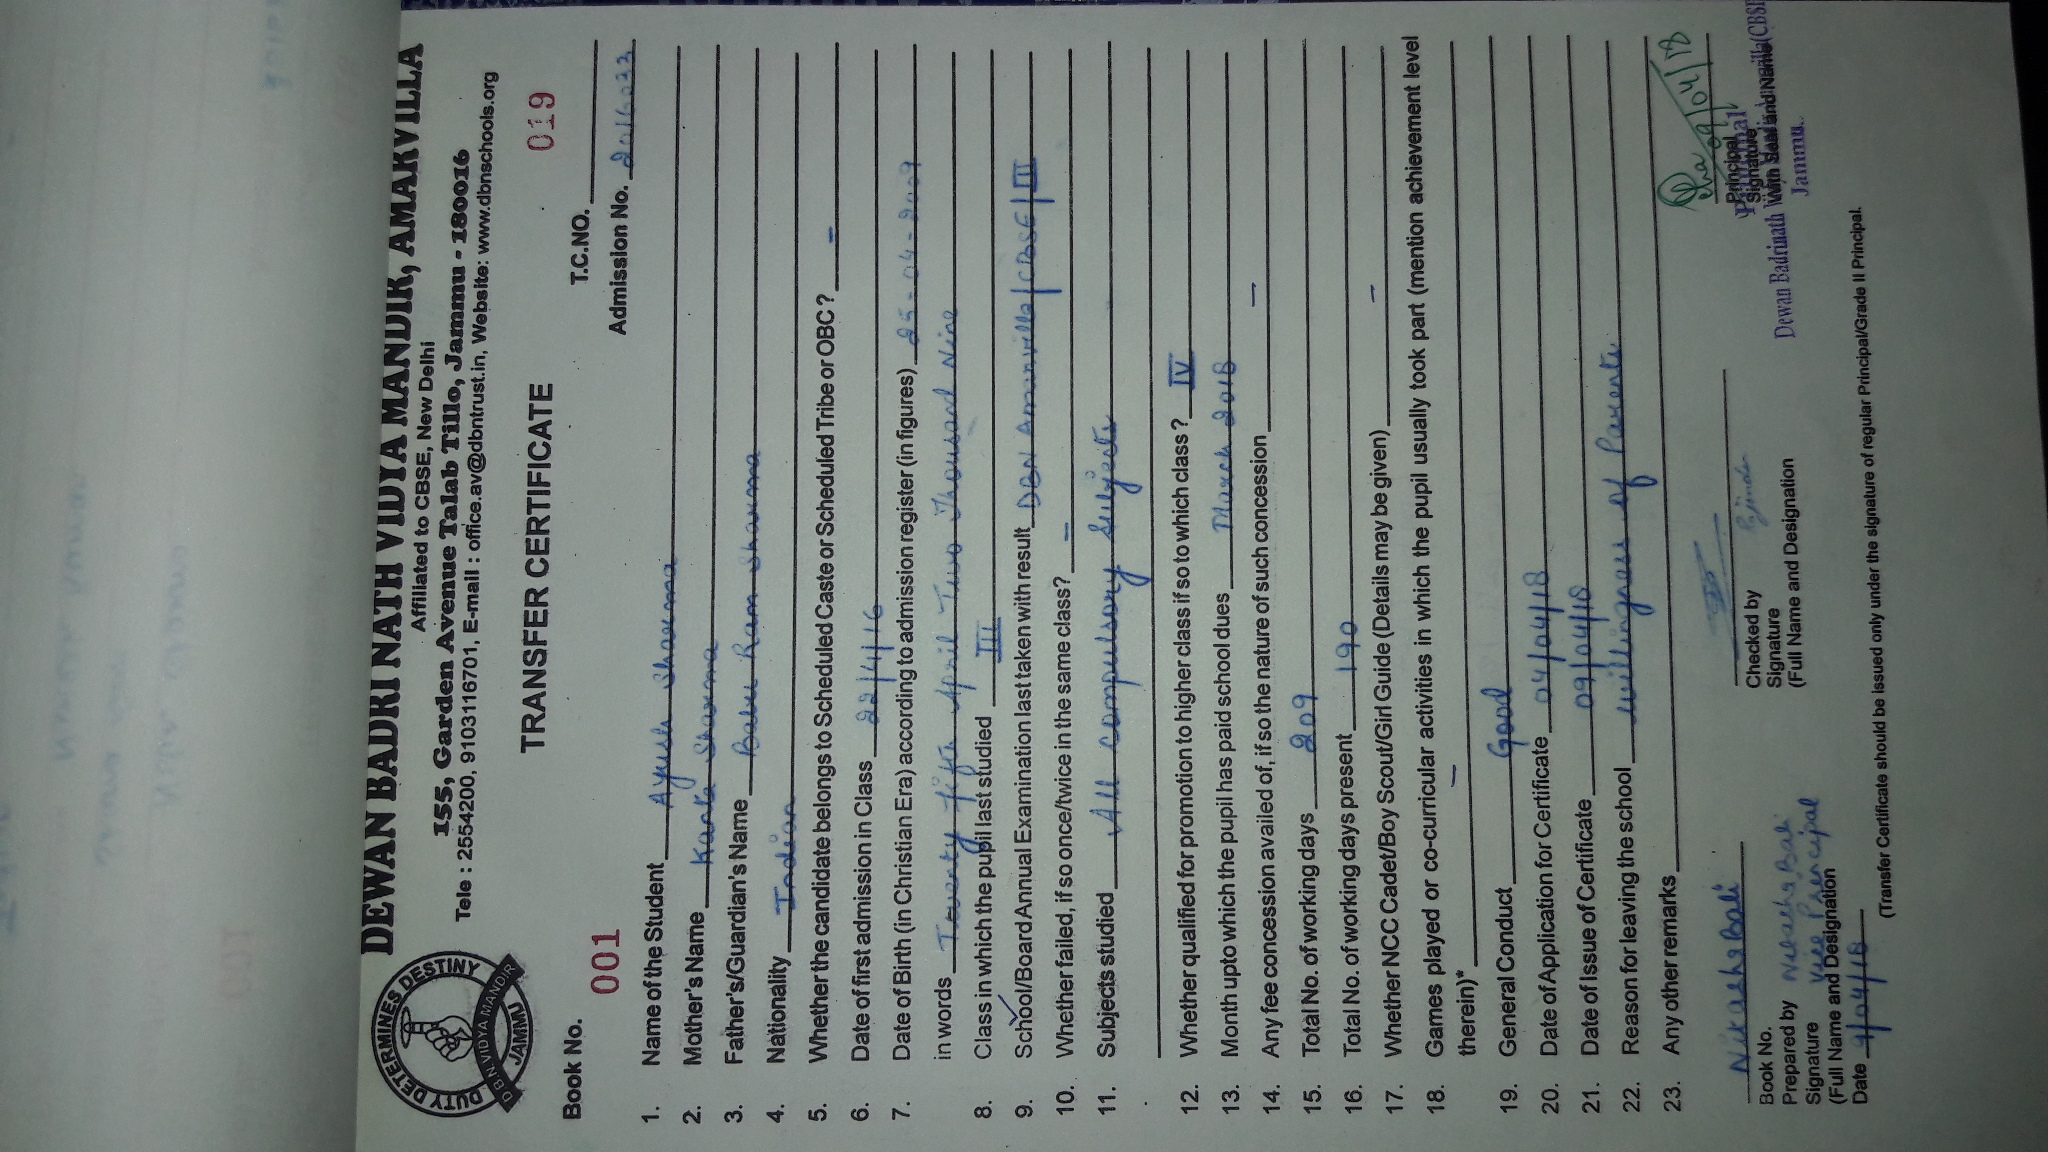 DEWAN BADRI NATH VIDYA MANDIR, AMARVILLA
Affiliated to CBSE, New Delhi
155, Garden Avenue Talab Tillo, Jammu - 180016
Tele : 2554200, 9103116701, E-mail : office.av@dbntrust.in, Website: www.dbnschools.org
DUTY DETERMINES DESTINY
DBN VIDYA MANDIR
JAMMU
TRANSFER CERTIFICATE
019
T.C.NO.
Book No. 001
Admission No. 2016023
1. Name of the Student Ayush Sharma
2. Mother's Name Kanta Sharma
3. Father's/Guardian's Name Babu Ram Sharma
4. Nationality Indian
5. Whether the candidate belongs to Scheduled Caste or Scheduled Tribe or OBC? -
6. Date of first admission in Class 22/4/16
7. Date of Birth (in Christian Era) according to admission register (in figures) 25-04-2009
in words Twenty fifth April Two Thousand Nine
8. Class in which the pupil last studied III
9. School/Board Annual Examination last taken with result DBN Amarvilla/CBSE/III
10. Whether failed, if so once/twice in the same class? -
11. Subjects studied All compulsory subjects
12. Whether qualified for promotion to higher class if so to which class? IV
13. Month upto which the pupil has paid school dues March 2018
14. Any fee concession availed of, if so the nature of such concession -
15. Total No. of working days 209
16. Total No. of working days present 190
17. Whether NCC Cadet/Boy Scout/Girl Guide (Details may be given) -
18. Games played or co-curricular activities in which the pupil usually took part (mention achievement level
therein)* -
19. General Conduct Good
20. Date of Application for Certificate 04/04/18
21. Date of Issue of Certificate 09/04/18
22. Reason for leaving the school willingness of Parents
23. Any other remarks
09/04/18
Book No.
Prepared by
Signature Vice Principal
(Full Name and Designation
Date 9/04/18
Checked by
Signature
(Full Name and Designation)
Principal
Signature
With Seal and Name
Principal
Dewan Badrinath
Jammu.
(Transfer Certificate should be issued only under the signature of regular Principal/Grade II Principal.